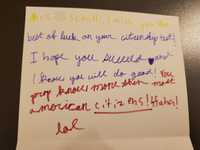 I wish you the
best of luck on your citizenship test!
I hope you succeed and
I know you will do good! You
prop know more then most
american citizens! Haha!
lol